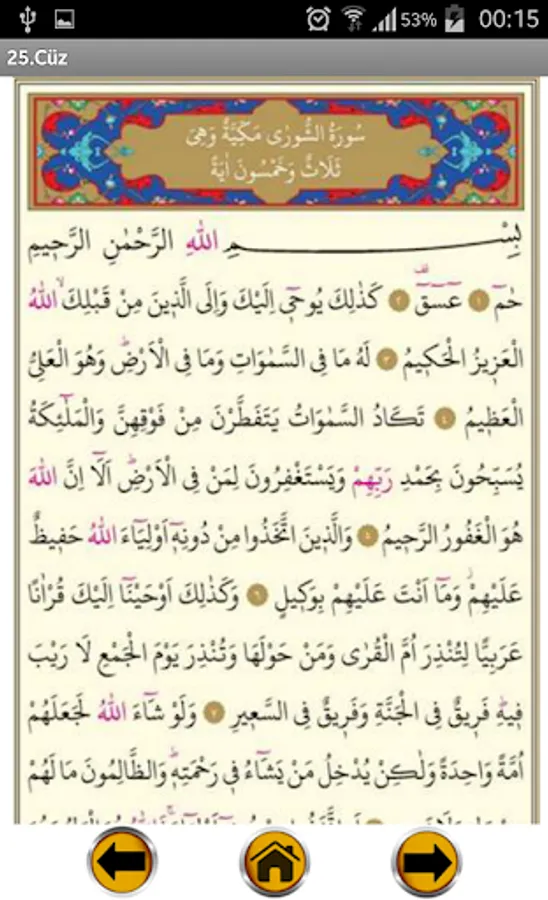 53% 00:15
25.Cüz
سُورَةُ الشُّورٰى مَكِّيَّةٌ وَهِيَ
ثَلَاثٌ وَخَمْسُونَ اٰيَةً
بِسْمِ اللّٰهِ الرَّحْمٰنِ الرَّح۪يمِ
حٰمٓ ١ عٓسٓقٓ ٢ كَذٰلِكَ يُوح۪ٓي اِلَيْكَ وَاِلَى الَّذ۪ينَ مِنْ قَبْلِكَۙ اللّٰهُ
الْعَز۪يزُ الْحَك۪يمُ ٣ لَهُ مَا فِي السَّمٰوَاتِ وَمَا فِي الْاَرْضِۜ وَهُوَ الْعَلِيُّ
الْعَظ۪يمُ ٤ تَكَادُ السَّمٰوَاتُ يَتَفَطَّرْنَ مِنْ فَوْقِهِنَّ وَالْمَلٰٓئِكَةُ
يُسَبِّحُونَ بِحَمْدِ رَبِّهِمْ وَيَسْتَغْفِرُونَ لِمَنْ فِي الْاَرْضِۜ اَلَٓا اِنَّ اللّٰهَ
هُوَ الْغَفُورُ الرَّح۪يمُ ٥ وَالَّذ۪ينَ اتَّخَذُوا مِنْ دُونِه۪ٓ اَوْلِيَٓاءَ اللّٰهُ حَف۪يظٌ
عَلَيْهِمْۘ وَمَٓا اَنْتَ عَلَيْهِمْ بِوَك۪يلٍ ٦ وَكَذٰلِكَ اَوْحَيْنَٓا اِلَيْكَ قُرْاٰنًا
عَرَبِيًّا لِتُنْذِرَ اُمَّ الْقُرٰى وَمَنْ حَوْلَهَا وَتُنْذِرَ يَوْمَ الْجَمْعِ لَا رَيْبَ
ف۪يهِۜ فَر۪يقٌ فِي الْجَنَّةِ وَفَر۪يقٌ فِي السَّع۪يرِ ٧ وَلَوْ شَٓاءَ اللّٰهُ لَجَعَلَهُمْ
اُمَّةً وَاحِدَةً وَلٰكِنْ يُدْخِلُ مَنْ يَشَٓاءُ ف۪ي رَحْمَتِه۪ۜ وَالظَّالِمُونَ مَا لَهُمْ